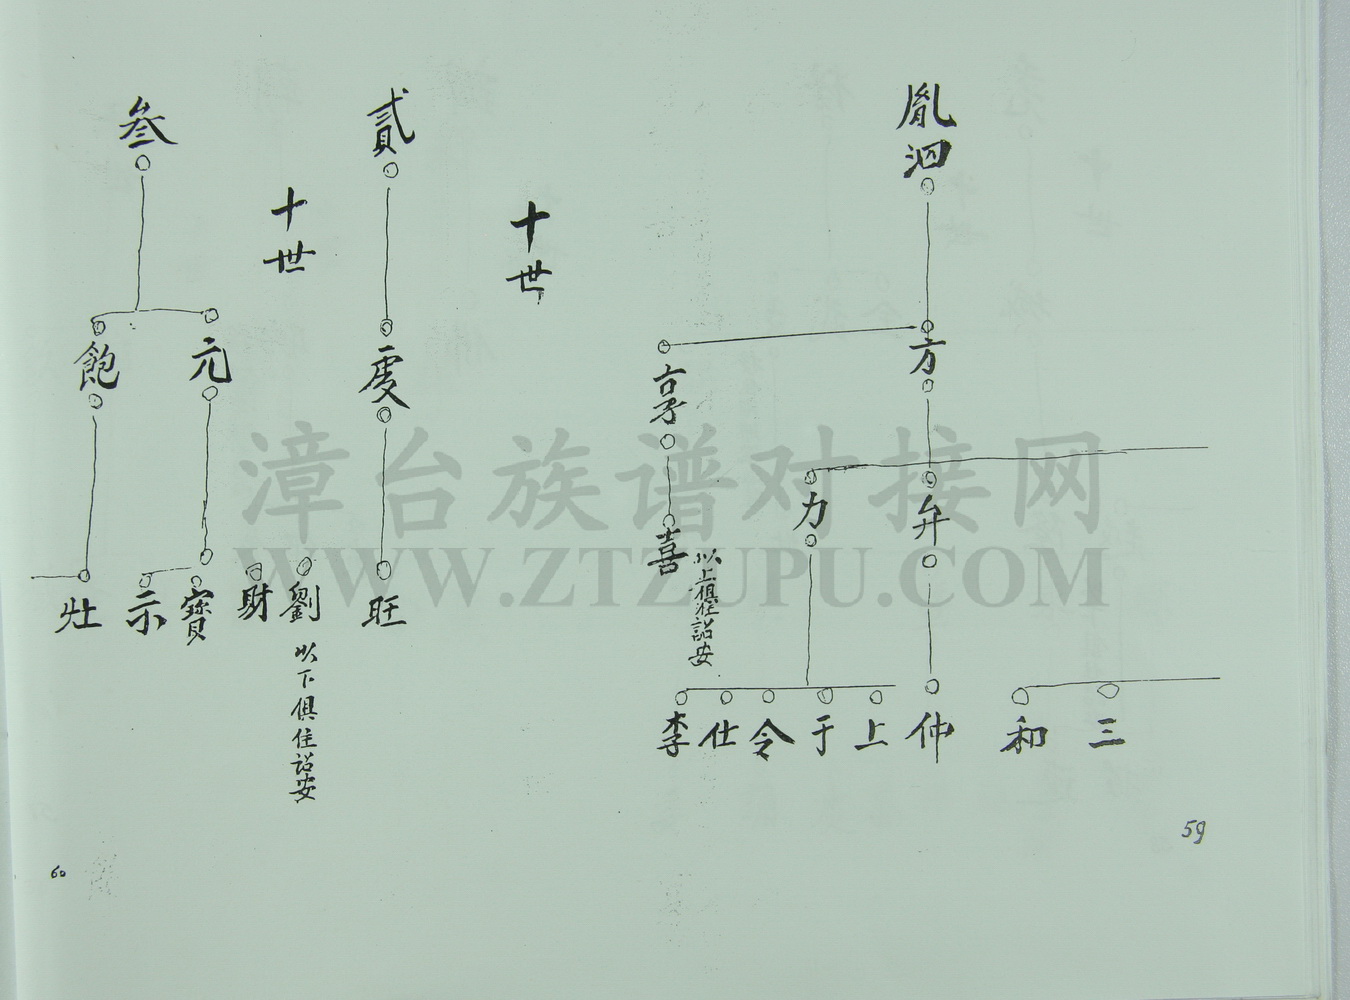 胤泗
方
享
弁
力
喜
以上俱住詔安
三
和
仲
上
于
令
仕
李
59
十世
貳
慶
旺
十世
叁
元
飽
劉
財
寶
示
灶
以下俱住詔安
60
漳台族谱对接网
WWW.ZTZUPU.COM